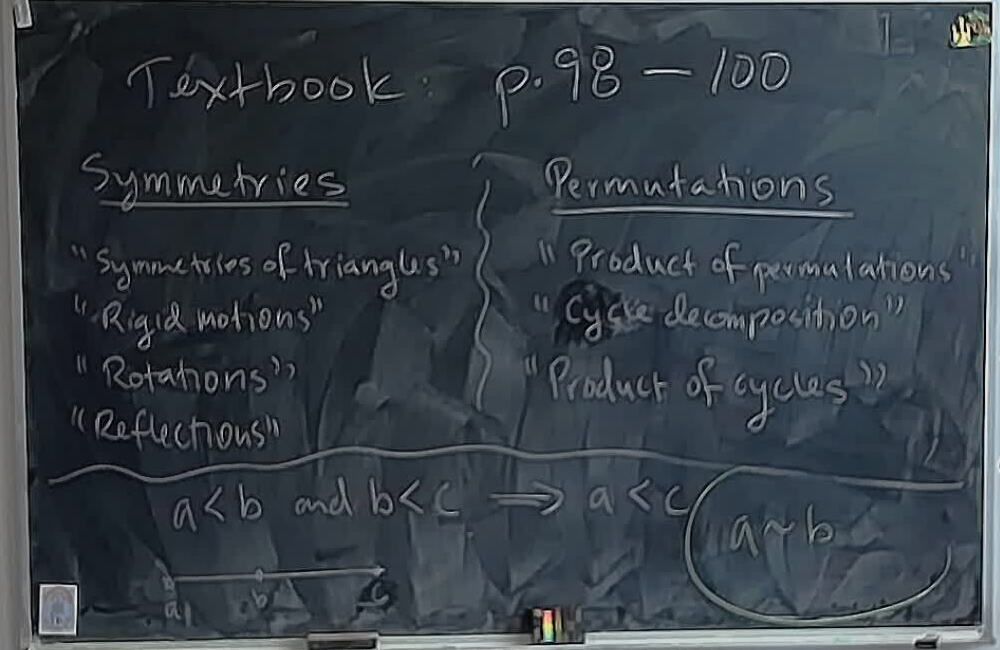 Textbook: p. 98 — 100
Symmetries
"Symmetries of triangles"
"Rigid motions"
"Rotations"
"Reflections"
Permutations
"Product of permutations"
"Cycle decomposition"
"Product of cycles"
a < b and b < c ⟹ a < c
a ~ b
a b c